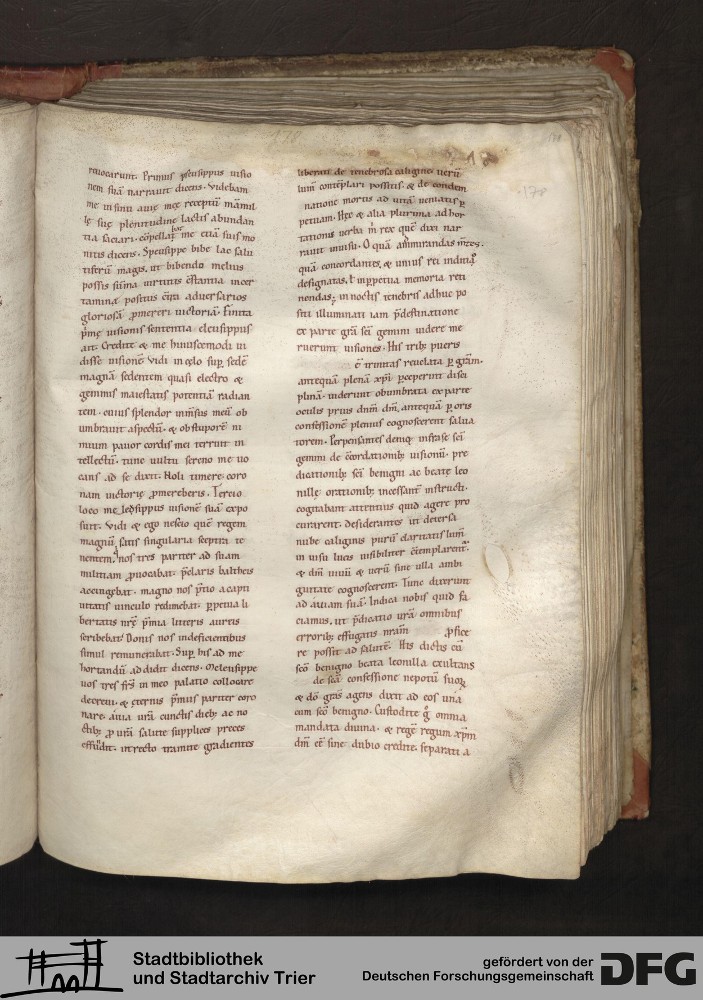 reuocarunt. Primus speusippus uisio
nem suā narrauit dicens. Videbam
me in sinu auię meę receptū māmil
lę suę plenitudine lactis abundan
tia saciari. cōpellar me etiā suis mo
nitis dicens. Speusippe bibe lac salu
tiferū magis, ut bibendo melius
possis sūma uirtutis cōstantia incer
tamine positus cōtra aduersarios
gloriosā promereri uictoriā. Finita
pīmę uisionis sententia eleusippus
ait. Credite & me huiuscemodi ui
disse uisionē. Vidi in cęlo sup sedē
magnā sedentem quasi electro &
gemmis maiestatis potentiā radian
tem. cuius splendor īmēsus meū ob
umbrauit aspectū. & obstuporē ni
mium pauor cordis mei terruit in
tellectū. tunc uultu sereno me uo
cans ad se dixit. Noli timere. coro
nam uictorię promereberis. Tercio
loco meleusippus uisionē suā expo
suit. Vidi & ego nescio quē regem
magnū satis singularia sceptra te
nentem, qui nos tres pariter ad suam
militiam prouocabat. pclaris baltheis
accingebat. magno nos ptio a capti
uitatis uinculo redimebat. ppetua li
bertatis nrę pmia litteris aureis
scribebat. Donis nos indeficientibus
simul remunerabat. Sup his ad me
hortandū addidit dicens. Meleusippe
uos tres frs in meo palatio collocare
decreui. & eternis pmiis pariter coro
nare. auia urā cunctis dieb; ac no
ctib; p urā salute supplices preces
effūdit. ut recto tramite gradientes
liberati de tenebrosa caligine, uerū
lum contēplari possitis. & de eondem
natione mortis ad uitā ueniatis p
petuam. Hęc & alia plurima adhor
tationis uerba m rex quē dixi nar
rauit inuisu. O quā ammirandas imagines.
quā concordantes, & unius rei indita
designatas. Inppetua memoria reti
nendas; in noctis tenebris adhuc po
siti illuminati iam pdestinatione
ex parte grā sci gemini uidere me
ruerunt uisiones. His trib; pueris
ē trinitas reuelata p grām.
antequā plenā xpi pceperint disci
plinā. uiderunt obumbrata ex parte
oculis prius dnm dm, antequā p oris
confessionē plenius cognoscerent salua
torem. Perpensantes deniq; infra se sci
gemini de cōcordationib; uisionū. pre
dicationib; sci benigni ac beatę leo
nillę orationib; incessant instructi.
cogitabant attentius quid agere pro
curarent. desiderantes ut detersa
nube caliginis purū claritatis lumē
in uisu luces uisibiliter cōtemplarent.
& dm uiuū & uerū sine ulla ambi
guitate cognoscerent. Tunc dixerunt
ad auiam suā. Indica nobis quid fa
ciamus, ut pdicatio urā omnibus
errorib; effugatis nram pfice
re possit ad salutē. His dictis cū
scō benigno beata leonilla exultans
de scā confessione nepotū suoꝝ
& dō gras agens dixit ad eos una
cum scō benigno. Custodite g omnia
mandata diuina. & regē regum xpm
dm eē sine dubio credite. separati a
Stadtbibliothek
und Stadtarchiv Trier
gefördert von der
Deutschen Forschungsgemeinschaft
DFG